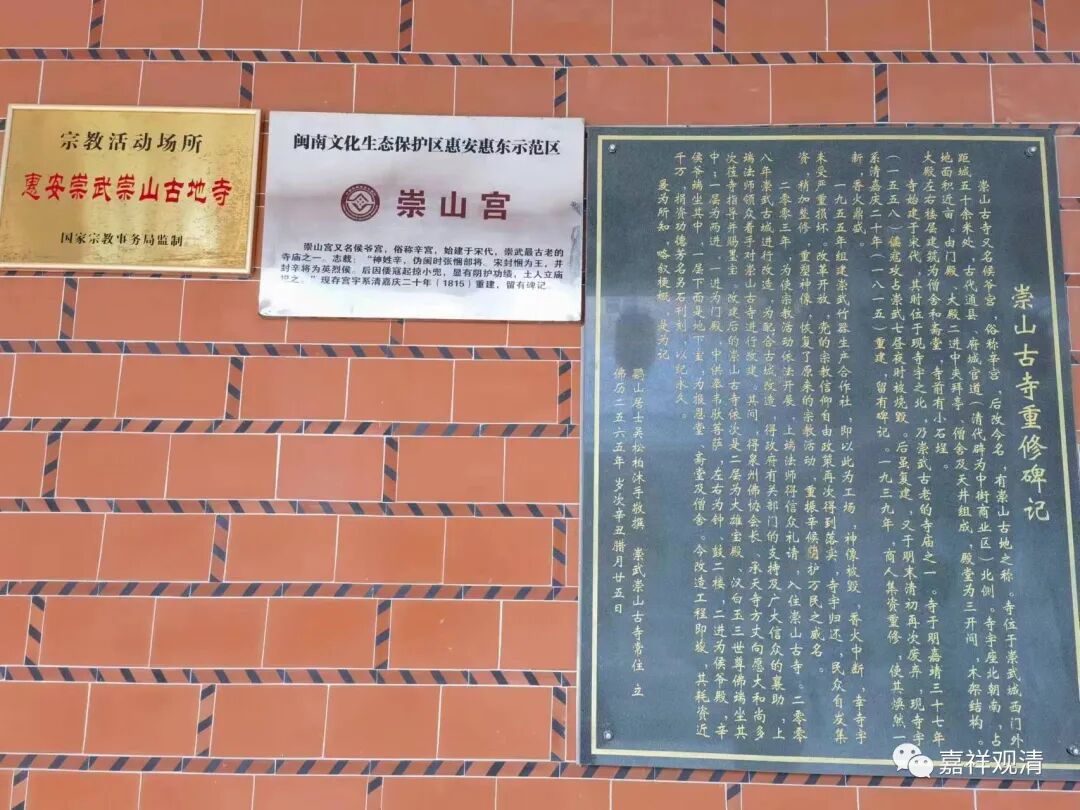 宗教活动场所
惠安崇武崇山古地寺
国家宗教事务局监制
闽南文化生态保护区惠安惠东示范区
崇山宫
崇山宫又名侯爷宫，俗称辛宫，始建于宋代，崇武最古老的
寺庙之一。志载：“神姓辛，伪闽时张悃部将。宋封悃为王，并
封辛将为英烈侯。后因倭寇起掠小兜，显有阴护功绩，土人立庙
祀之。”现存宫宇系清嘉庆二十年（1815）重建，留有碑记。
崇山古寺重修碑记
崇山古寺又名候爷宫，俗称辛宫，后改今名，有崇山古地之称。寺位于崇武城西门外
距城五十余米处，古代通县、府城官道（清代辟为中街商业区）北侧。寺宇座北朝南，占
地面积近亩。由门殿、大殿二进中夹拜亭、僧舍及天井组成，殿堂为三开间，木架结构。
大殿左右楼层建筑为僧舍和斋堂，寺前有小石埕。
寺始建于宋代，其时位于现寺宇之北，乃崇武古老的寺庙之一。寺于明嘉靖三十七年
（一五五八）倭寇攻占崇武七昼夜时被烧毁。后虽复建，又于明末清初再次废弃，现寺宇
系清嘉庆二十年（一八一五）重建，留有碑记。一九三九年，商人集资重修，使其焕然一
新，香火鼎盛。
一九五五年组建崇武竹器生产合作社，即以此为工场，神像被毁，香火中断，幸寺宇
未受严重损坏。改革开放，党的宗教信仰自由政策再次得到落实，寺宇归还，民众自发集
资，稍加整修，重塑神像，恢复了原来的宗教活动，重振辛候阴护万民之威名。
二零零三年，为使宗教活动依法开展，上端法师得信众礼请，入住崇山古寺。二零零
八年崇武古城进行改造，为配合古城改造，得政府有关部门的支持及广大信众的襄助，上
端法师领众着手对崇山古寺进行改建。其间，得泉州佛协会长、承天寺方丈向愿大和尚多
次莅寺指导并赐墨宝。改建后的崇山古寺依次是二层为大雄宝殿、汉白玉三世尊佛端坐其
中；一层为两进，一进为门殿、中供奉韦驮菩萨，左右为钟、鼓二楼，二进为侯爷殿，辛
侯爷端坐其中，一层下面是地下室，为报恩堂、斋堂及僧舍。今改造工程即竣，其耗资近
千万，捐资功德芳名另石利刻，以纪永久。
爰为所知，略叙梗概，是为记
鹏山居士吴松柏沐手敬撰 崇武崇山古寺常住 立
佛历二五六五年 岁次辛丑腊月廿五日
嘉祥观清